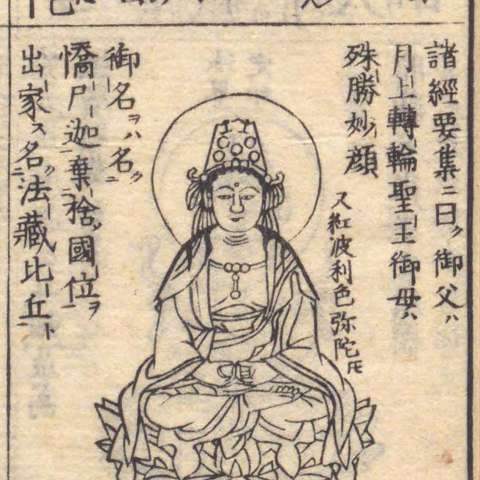 諸經要集ニ曰ク御父ハ
月上轉輪聖王御母ハ
殊勝妙顔
又紅波利色弥陀圧
御名ヲハ名ク
憍尸迦棄捨國位ヲ
出家ス名法藏比丘ト